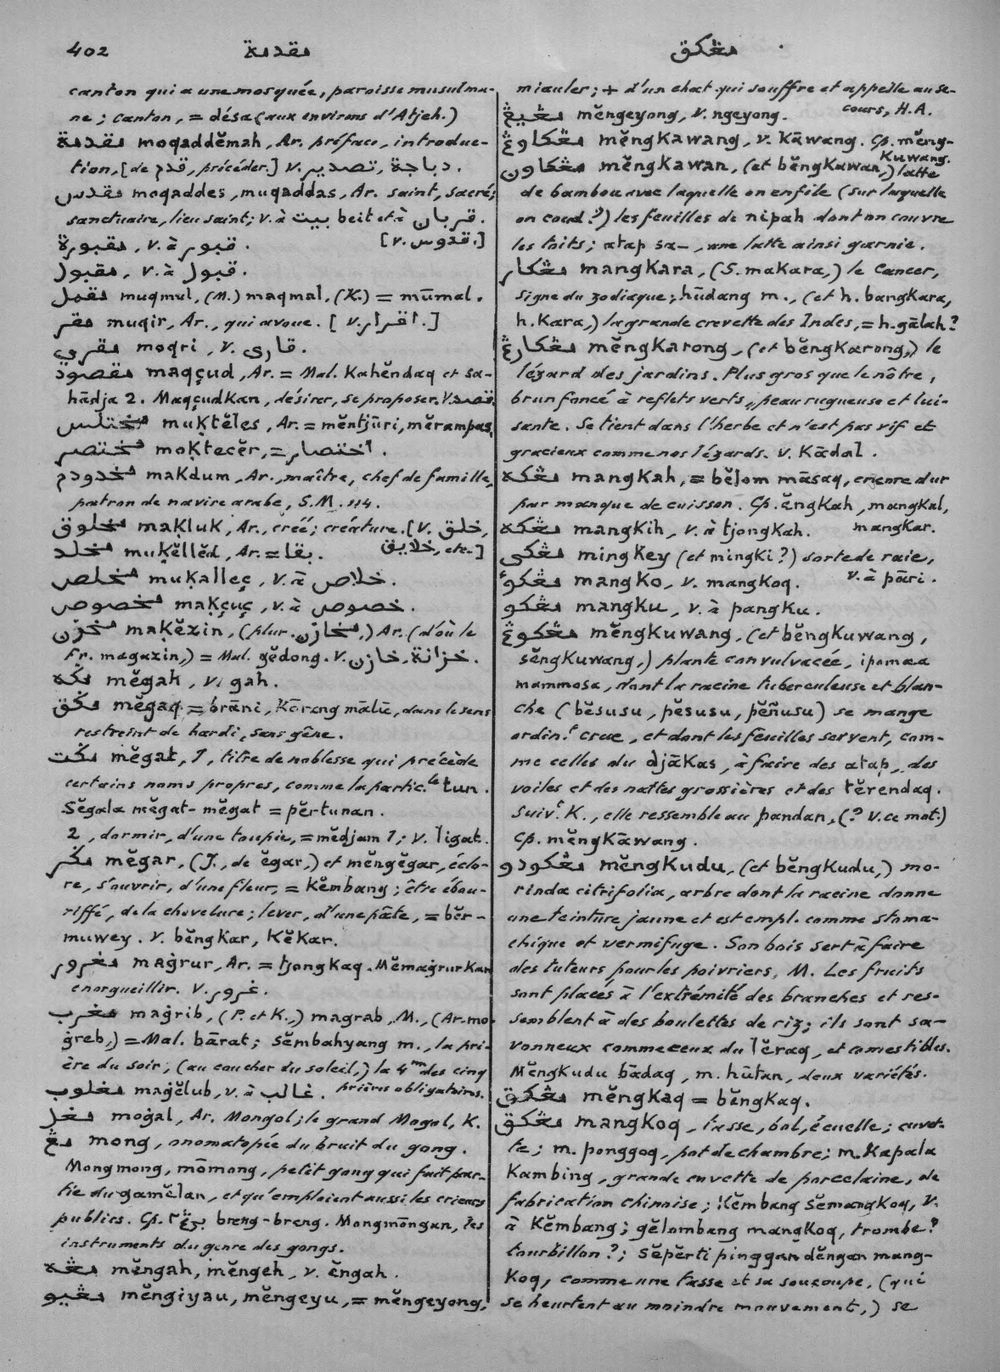 402
مقدمة
مڠكق
canton qui a une mosquée, paroisse musulma-
ne; canton, = désa (aux environs d'Atjeh.)
مقدمة moqaddĕmah, Ar. préface, introduc-
tion, [de قدم, précéder.] v. دباجة, تصدير.
مقدس moqaddes, muqaddas, Ar. saint, sacré;
sanctuaire, lieu saint; v. à بيت beit et à قربان.
مقبورة, v. à قبور. [v. قدوس.]
مقبول, v. à قبول.
مقمل muqmul, (M.) maqmal, (K.) = mūmal.
مقر muqir, Ar., qui avoue. [v. اقرار.]
مقري moqri, v. قارى.
مقصود maqçud, Ar. = Mal. Kahĕndaq et sa-
hādja 2. MaqçudKan, désirer, se proposer. v. قصد.
مختلس muktĕles, Ar. = mĕntjūri, mĕrampas.
مختصر moktecĕr, = اختصار.
مخدودم makdum, Ar., maître, chef de famille,
patron de navire arabe, S.M. 114.
مخلوق makluk, Ar., créé; créature. [v. خلق,
خلايق, etc.]
مخلد mukĕllĕd, Ar. = بقا.
مخلص mukalleç, v. à خلاص.
مخصوص makçuç, v. à خصوص.
مخزن makĕzin, (plur. مخازن,) Ar. (d'où le
fr. magazin,) = Mal. gĕdong. v. خزانة, خازن.
مڬه mĕgah, v. gah.
مڬق mĕgaq = brāni, Kōrang mālū, dans le sens
restreint de hardi, sans gêne.
مڬت mĕgat, 1, titre de noblesse qui précède
certains noms propres, comme la partic.le tun.
Sĕgala mĕgat-mĕgat = pĕrtunan.
2, dormir, d'une toupie, = mĕdjam 1; v. ligat.
مڬر mĕgar, (J., de ĕgar,) et mĕngĕgar, éclo-
re, s'ouvrir, d'une fleur, = Kĕmbang; être ébou-
riffé, de la chevelure; lever, d'une pâte, = bĕr-
muwey. v. bĕngkar, kĕkar.
مغرور maġrur, Ar. = tjongkaq. MĕmaġrurKan
enorgueillir. v. غرور.
مغرب maġrib, (P. et K.,) magrab, M., (Ar. mo-
ġreb,) = Mal. bārat; sĕmbahyang m., la pri-
ère du soir, (au coucher du soleil,) la 4me des cinq
prières obligatoires.
مغلوب maġĕlub, v. à غالب.
مغل moġal, Ar. Mongol; le grand Mogol, K.
مڠ mong, onomatopée du bruit du gong.
Mongmong, mōmong, petit gong qui fait par-
tie du gamĕlan, et qu'emploient aussi les crieurs
publics. Cp. برڠ٢ breng-breng. Mongmōngan, les
instruments du genre des gongs.
مڠه mĕngah, mĕngeh, v. ĕngah.
مڠيو mĕngiyau, mĕngeyu, = mĕngeyong,
miauler; + d'un chat qui souffre et appelle au se-
cours, H.A.
مڠيڠ mĕngeyong, v. ngeyong.
مڠكاوڠ mĕngkawang, v. Kāwang. Cp. mĕng-
Kuwang.
مڠكاون mĕngkawan, (et bĕngkawan,) latte
de bambou avec laquelle on enfile (sur laquelle
on coud?) les feuilles de nipah dont on couvre
les toits; atap sa-, une latte ainsi garnie.
مڠكار mangkara, (S. makara,) le Cancer,
signe du zodiaque; hūdang m., (et h. bangkara,
h. Kara,) la grande crevette des Indes, = h. gālah?
مڠكارڠ mĕngkarong, (et bĕngkarong,) le
lézard des jardins. Plus gros que le nôtre,
brun foncé à reflets verts, peau rugueuse et lui-
sante. Se tient dans l'herbe et n'est pas vif et
gracieux comme nos lézards. v. Kādal.
مڠكه mangkah, = bĕlom māsaq, encore dur
par manque de cuisson. Cp. ĕngkah, mangkal,
mangkar.
مڠكه mangkih, v. à tjongkah.
مڠكى mingkey (et mingki?) sorte de raie,
v. à pāri.
مڠكوء mangko, v. mangkoq.
مڠكو mangku, v. à pangku.
مڠكوڠ mĕngkuwang, (et bĕngkuwang,
sĕngkuwang,) plante convulvacée, ipomœa
mammosa, dont la racine tuberculeuse et blan-
che (bĕsusu, pĕsusu, pĕñusu) se mange
ordin.t crue, et dont les feuilles servent, com-
me celles du djākas, à faire des atap, des
voiles et des nattes grossières et des tĕrendaq.
Suiv.t K., elle ressemble au pandan, (? v. ce mot.)
Cp. mĕngkāwang.
مڠكودو mĕngkudu, (et bĕngkudu,) mo-
rinda citrifolia, arbre dont la racine donne
une teinture jaune et est empl. comme stoma-
chique et vermifuge. Son bois sert à faire
des tuteurs pour les poivriers, M. Les fruits
sont placés à l'extrémité des branches et res-
semblent à des boulettes de riz; ils sont sa-
vonneux comme ceux du lĕraq, et comestibles.
Mĕngkudu bādaq, m. hūtan, deux variétés.
مڠكق mĕngkaq = bĕngkaq.
مڠكق mangkoq, tasse, bol, écuelle; cuvet-
te; m. ponggoq, pot de chambre; m. Kapala
Kambing, grande cuvette de porcelaine, de
fabrication chinoise; Kĕmbang Sĕmangkoq, v.
à Kĕmbang; gĕlombang mangkoq, trombe?
tourbillon?; sĕpĕrti pinggan dĕngan mang-
koq, comme une tasse et sa soucoupe, (qui
se heurtent au moindre mouvement,) se